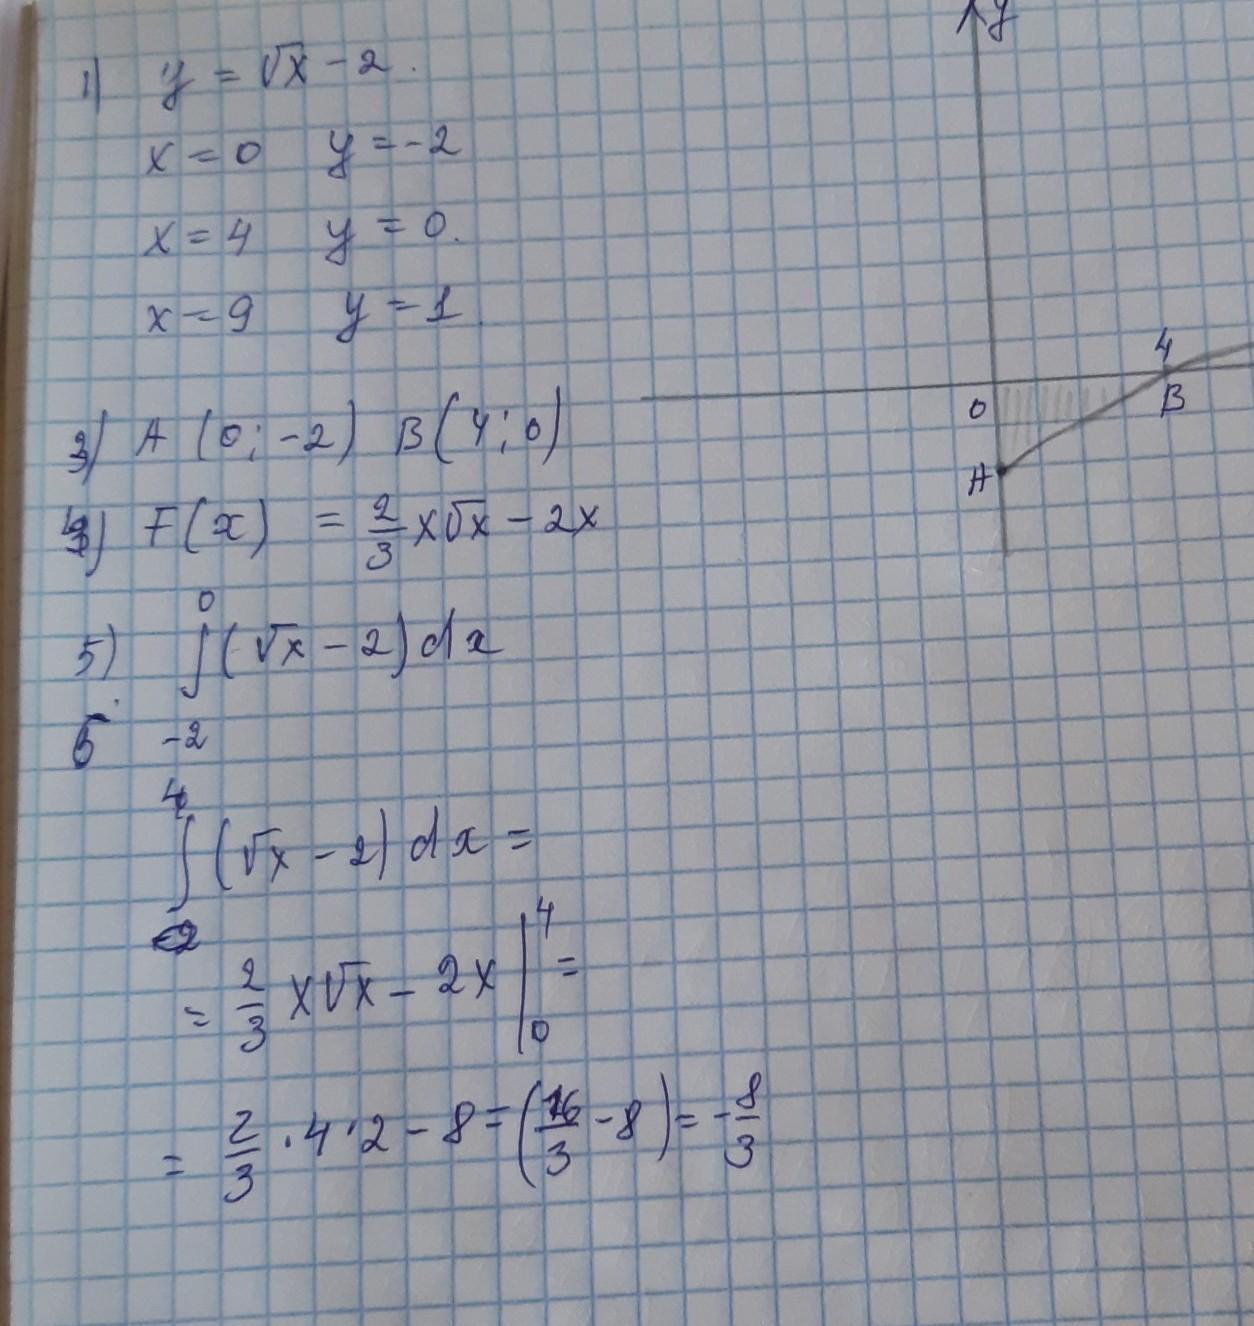 1) y = √x - 2.
x = 0 y = -2
x = 4 y = 0.
x = 9 y = 1
3) A (0; -2) B(4; 0)
4) F(x) = 2/3 x√x - 2x
5) ∫_{-2}^{0} (√x - 2) dx
5
∫^{4} (√x - 2) dx =
= 2/3 x√x - 2x |_{0}^{4} =
= 2/3 · 4 · 2 - 8 = (16/3 - 8) = -8/3
y
4
0
B
A